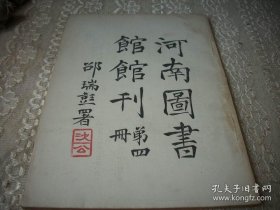 河南圖書
館館刊第四冊
邵瑞彭署
次公
孔夫子旧书网